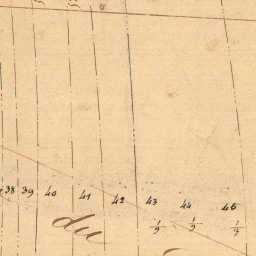 38 39 40 41 42 43 44 46
1/2 1/2 1/2
du